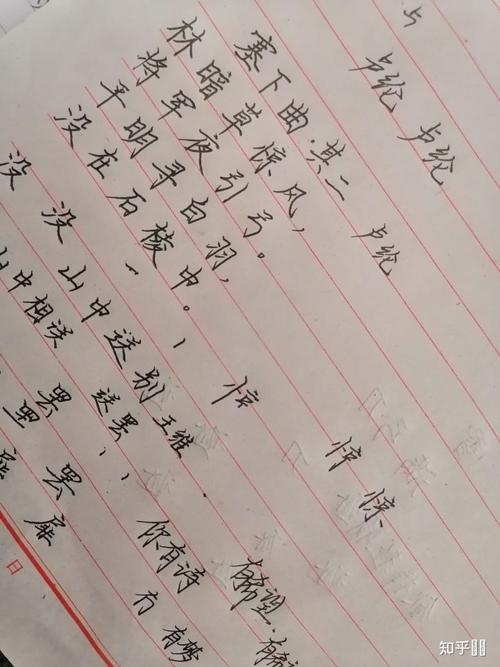 卢纶 卢纶
塞下曲.其二 卢纶
林暗草惊风,
将军夜引弓。
平明寻白羽,
没在石棱中。
惊
惊
没 没 山中送别 王维
山中相送罢
罢
罢
扉
你有诗 有希望
有梦
日
知乎